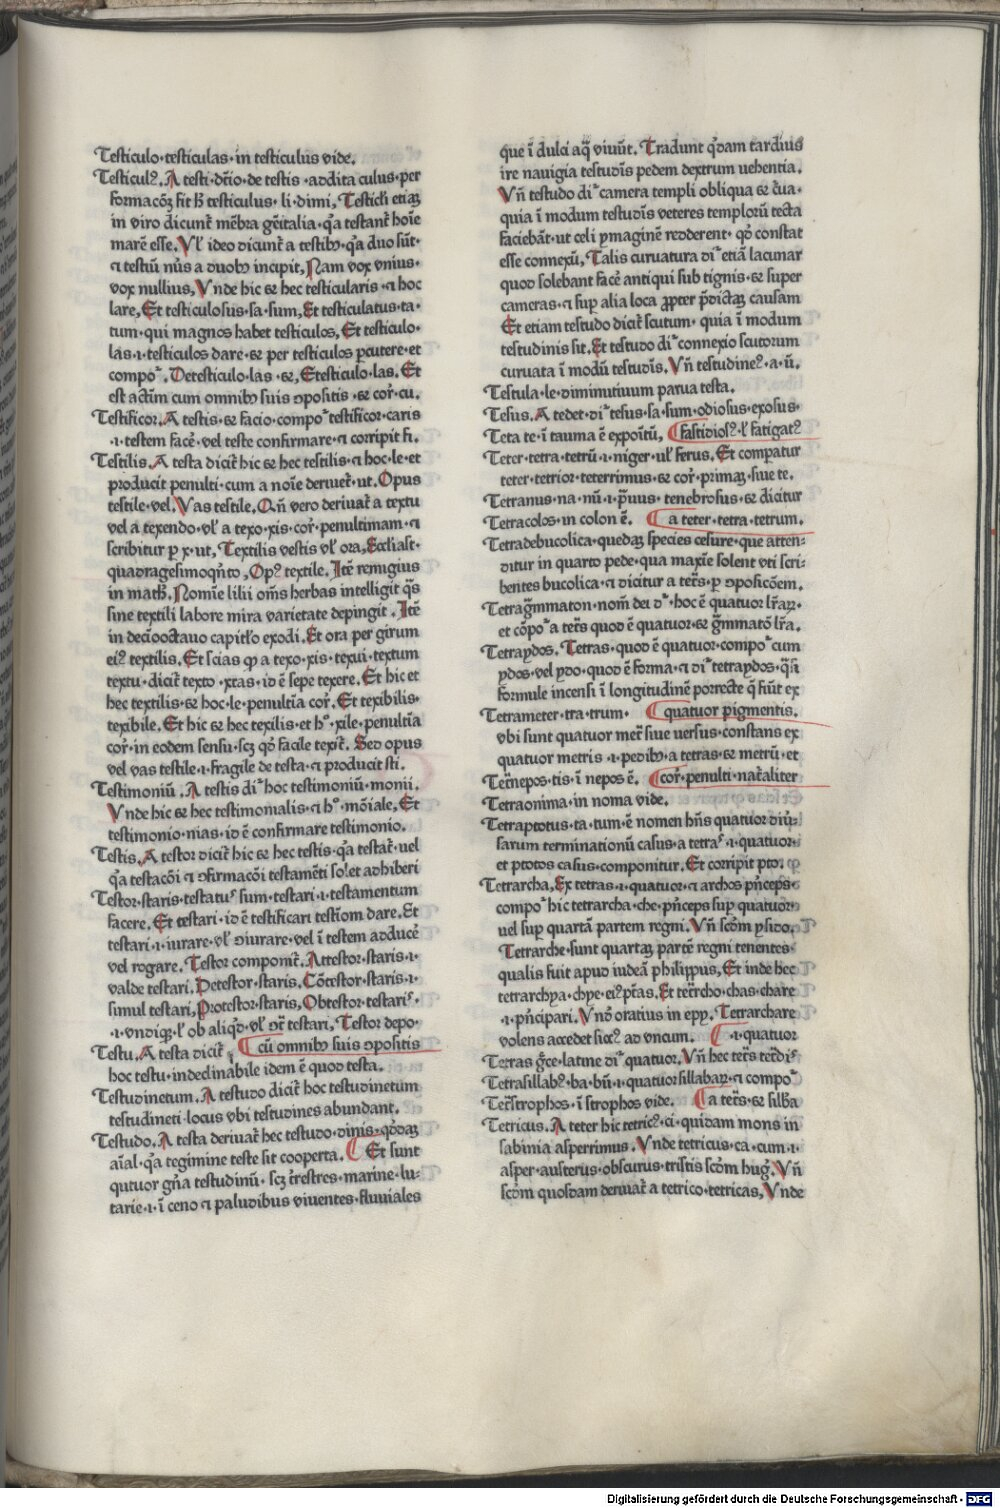 Testiculo·testiculas·in testiculus vide.
Testicul⁹. A testi·dc̄io·de testis·addita culus·per
formacōꝫ fit hͦ testiculus·li·dimi, Testicl̄i etiaꝫ
in viro dicunt᷑ mēbra gēitalia·qͣ testant᷑ hoīe
marē esse. Vl̓ ideo dicunt᷑ a testibꝰ·qͣ duo sūt·
⁊ testiū nūs a duobꝰ incipit, Nam vox vnius·
vox nullius, Vnde hic ⁊ hec testicularis·⁊ hoc
lare, Et testiculosus·sa·sum, Et testiculatus·ta·
tum·qui magnos habet testiculos, Et testiculo·
las·ı·testiculos dare·⁊ per testiculos ꝑcutere·et
compoᷣ. Detesticulo·las·⁊, Etesticulo·las. Et
est actiūm cum omnibꝰ suis ꝯpositis·⁊ cor᷑·cu.
Testificor. A testis·⁊ facio·compoᷣ testificor·caris
·ı·testem facē·vel teste confirmare·⁊ corripit fi.
Testilis. A testa dicit᷑ hic ⁊ hec testilis·⁊ hoc·le·et
producit penulti·cum a noīe deruet᷑·ut. Opus
testile·vel. Vas testile. Qn̄ vero deriuat᷑ a textu
vel a texendo·vl̓ a texo·xis·cor᷑·penultimam·⁊
scribitur ꝑ x·ut, Textilis vestis vl̓ ora, Eccliast·
quadragesimoqn̄to, Op⁹ textile. Itē remigius
in math. Nomīe lilii om̄s herbas intelligit qͣs
sine textili labore mira varietate depingit. Itē
in deciooctauo capitl̓o exodi. Et ora per girum
ei⁹ textilis. Et scias ꝙ a texo·xis·texui·textum
textu·dicit᷑ texto·xtas·id ē sepe texere. Et hic et
hec textilis·⁊ hoc·le·penultīa cor᷑. Et texibilis·
texibile. Et hic ⁊ hec texilis·et hͦ·xile·penultīa
cor᷑·in eodem sensu·scꝫ qd̓ facile texit᷑. Sed opus
vel vas testile·ı·fragile de testa·⁊ producit sti.
Testimoniū. A testis diᷣ hoc testimoniū·monii.
Vnde hic ⁊ hec testimonialis·⁊ hͦ·mōiale, Et
testimonio·nias·id ē confirmare testimonio.
Testis. A testor dicit᷑ hic ⁊ hec testis·qͣ testat᷑·uel
qͣ testacōi ⁊ ꝯfirmacōi testamēti solet adhiberi
Testor·staris·testatuˢ sum·testari·ı·testamentum
facere. Et testari·id ē testificari testīom dare. Et
testari·ı·iurare·vl̓ ꝯiurare·vel ī testem adducē
vel rogare. Testor componit᷑. Attestor·staris·ı·
valde testari. Detestor·staris. Cōtestor·staris·ı·
simul testari, Protestor·staris, Obtestor·testariˢ·
·ı·vndiqꝫ·l̓ ob aliqd̓·vl̓ ꝯt᷑ testari, Testor depo·
Testu. A testa dicit᷑ ¶ cū omnibꝰ suis ꝯpositis
hoc testu·indeclinabile idem ē quod testa.
Testudinetum. A testudo dicit᷑ hoc testudinetum
testudineti·locus vbi testudines abundant.
Testudo. A testa deriuat᷑ hec testudo·dinis·qd̓daꝫ
aīal·qͣ tegimine teste sit cooperta. ¶ Et sunt
qutuor gn̄a testudinū·scꝫ t᷑restres·marine·lu·
tarie·ı·ī ceno ⁊ paludibus viuentes·fluuiales
que ī dulci aq̄ viuūt. Tradunt qd̓am tardius
ire nauigia testudīs pedem dextrum uehentia.
Vn̄ testudo diᷣ camera templi obliqua ⁊ c᷑ua·
quia ī modum testudīs veteres templorū tecta
faciebāt·ut celi ymaginē redderent·qd̓ constat
esse connexū, Talis curuatura diᷣ etiā lacunar
quod solebant facē antiqui sub tignis·⁊ super
cameras·⁊ sup̄ alia loca ꝓpter p̄dictaꝫ causam
Et etiam testudo dicit᷑ scutum·quia ī modum
testudinis sit. Et testudo diᷣ connexio scutorum
curuata ī modū testudīs. Vn̄ testudine⁹·a·ū.
Testula·le·diminutiuum parua testa.
Tesus. A tedet·diᷣ tesus·sa·sum·odiosus·exosus·
Teta te·ı tauma ē expoītū, ¶ fastidios⁹·l̓ fatigat⁹
Teter·tetra·tetrū·ı·niger·ul̓ ferus. Et compatur
teter·tetrior·teterrimus·⁊ cor᷑·primaꝫ·siue te.
Tetranus·na·nū·ı·p̄uus·tenebrosus·⁊ dicitur
Tetracolos·in colon ē. ¶ a teter·tetra·tetrum.
Tetradebucolica·quedaꝫ species cesure·que atten⸗
ditur in quarto pede·qua maxīe solent vti scri⸗
bentes bucolica·⁊ dicitur a tet᷑s·ꝑ ꝯposicōem.
Tetragᷓmmaton·nom̄ dei d᷑·hoc ē quatuor lr̄aꝝ·
et cōpoᷣ a tet᷑s quod ē quatuor·⁊ gᷓmmatō lr̄a.
Tetraydos. Tetras·quod ē quatuor·compoᷣ cum
ydos·vel ydo·quod ē forma·⁊ diᷣ tetraydos·qͣsi
formule incensi ī longitudinē porrecte q̄ fiūt ex
Tetrameter·tra·trum· ¶ quatuor pigmentis.
vbi sunt quatuor met᷑ siue uersus·constans ex
quatuor metris·ı·pedibꝰ·a tetras·⁊ metrū·et
Tet᷑nepos·tis·ī nepos ē. ¶ cor᷑·penulti·nat᷑aliter
Tetraonima·in noma vide.
Tetraptotus·ta·tum·ē nomen hn̄s quatuor diu᷑⸗
sarum terminationū casus·a tetraˢ·ı·quatuor·
et ptotos casus·componitur. Et corripit pto.
Tetrarcha, Ex tetras·ı·quatuor·⁊ archos pn̄ceps·
compoᷣ hic tetrarcha·che·pn̄ceps sup̄ quatuor·
uel sup̄ quartā partem regni. Vn̄ scd̓m ysido.
Tetrarche·sunt quartaꝫ partē regni tenentes·
qualis fuit apud iudeā philippus, Et inde hec
tetrarchya·chye·ei⁹ pt᷑as. Et tet᷑cho·chas·chare
·ı·pn̄cipari. Vnd̓ oratius in epy. Tetrarchare
volens accedet sicc⁹ ad vncum. ¶ ·ı·quatuor
Tetras gᷓce·latine diᷣ quatuor. Vn̄ hec tet᷑s tet᷑diˢ
Tetrasillab⁹·ba·bū·ı·quatuor sillabaꝝ·⁊ compoᷣ
Tet᷑strophos·ī strophos vide. ¶ a tet᷑s·⁊ sill̓ba
Tetricus. A teter hic tetric⁹·ci·quidam mons in
sabinia asperrimus. Vnde tetricus·ca·cum·ı·
asper·austerus·obscurus·tristis scd̓m hug. Vn̄
scd̓m quosdam deriuat᷑ a tetrico·tetricas, Vnde
Digitalisierung gefördert durch die Deutsche Forschungsgemeinschaft - DFG